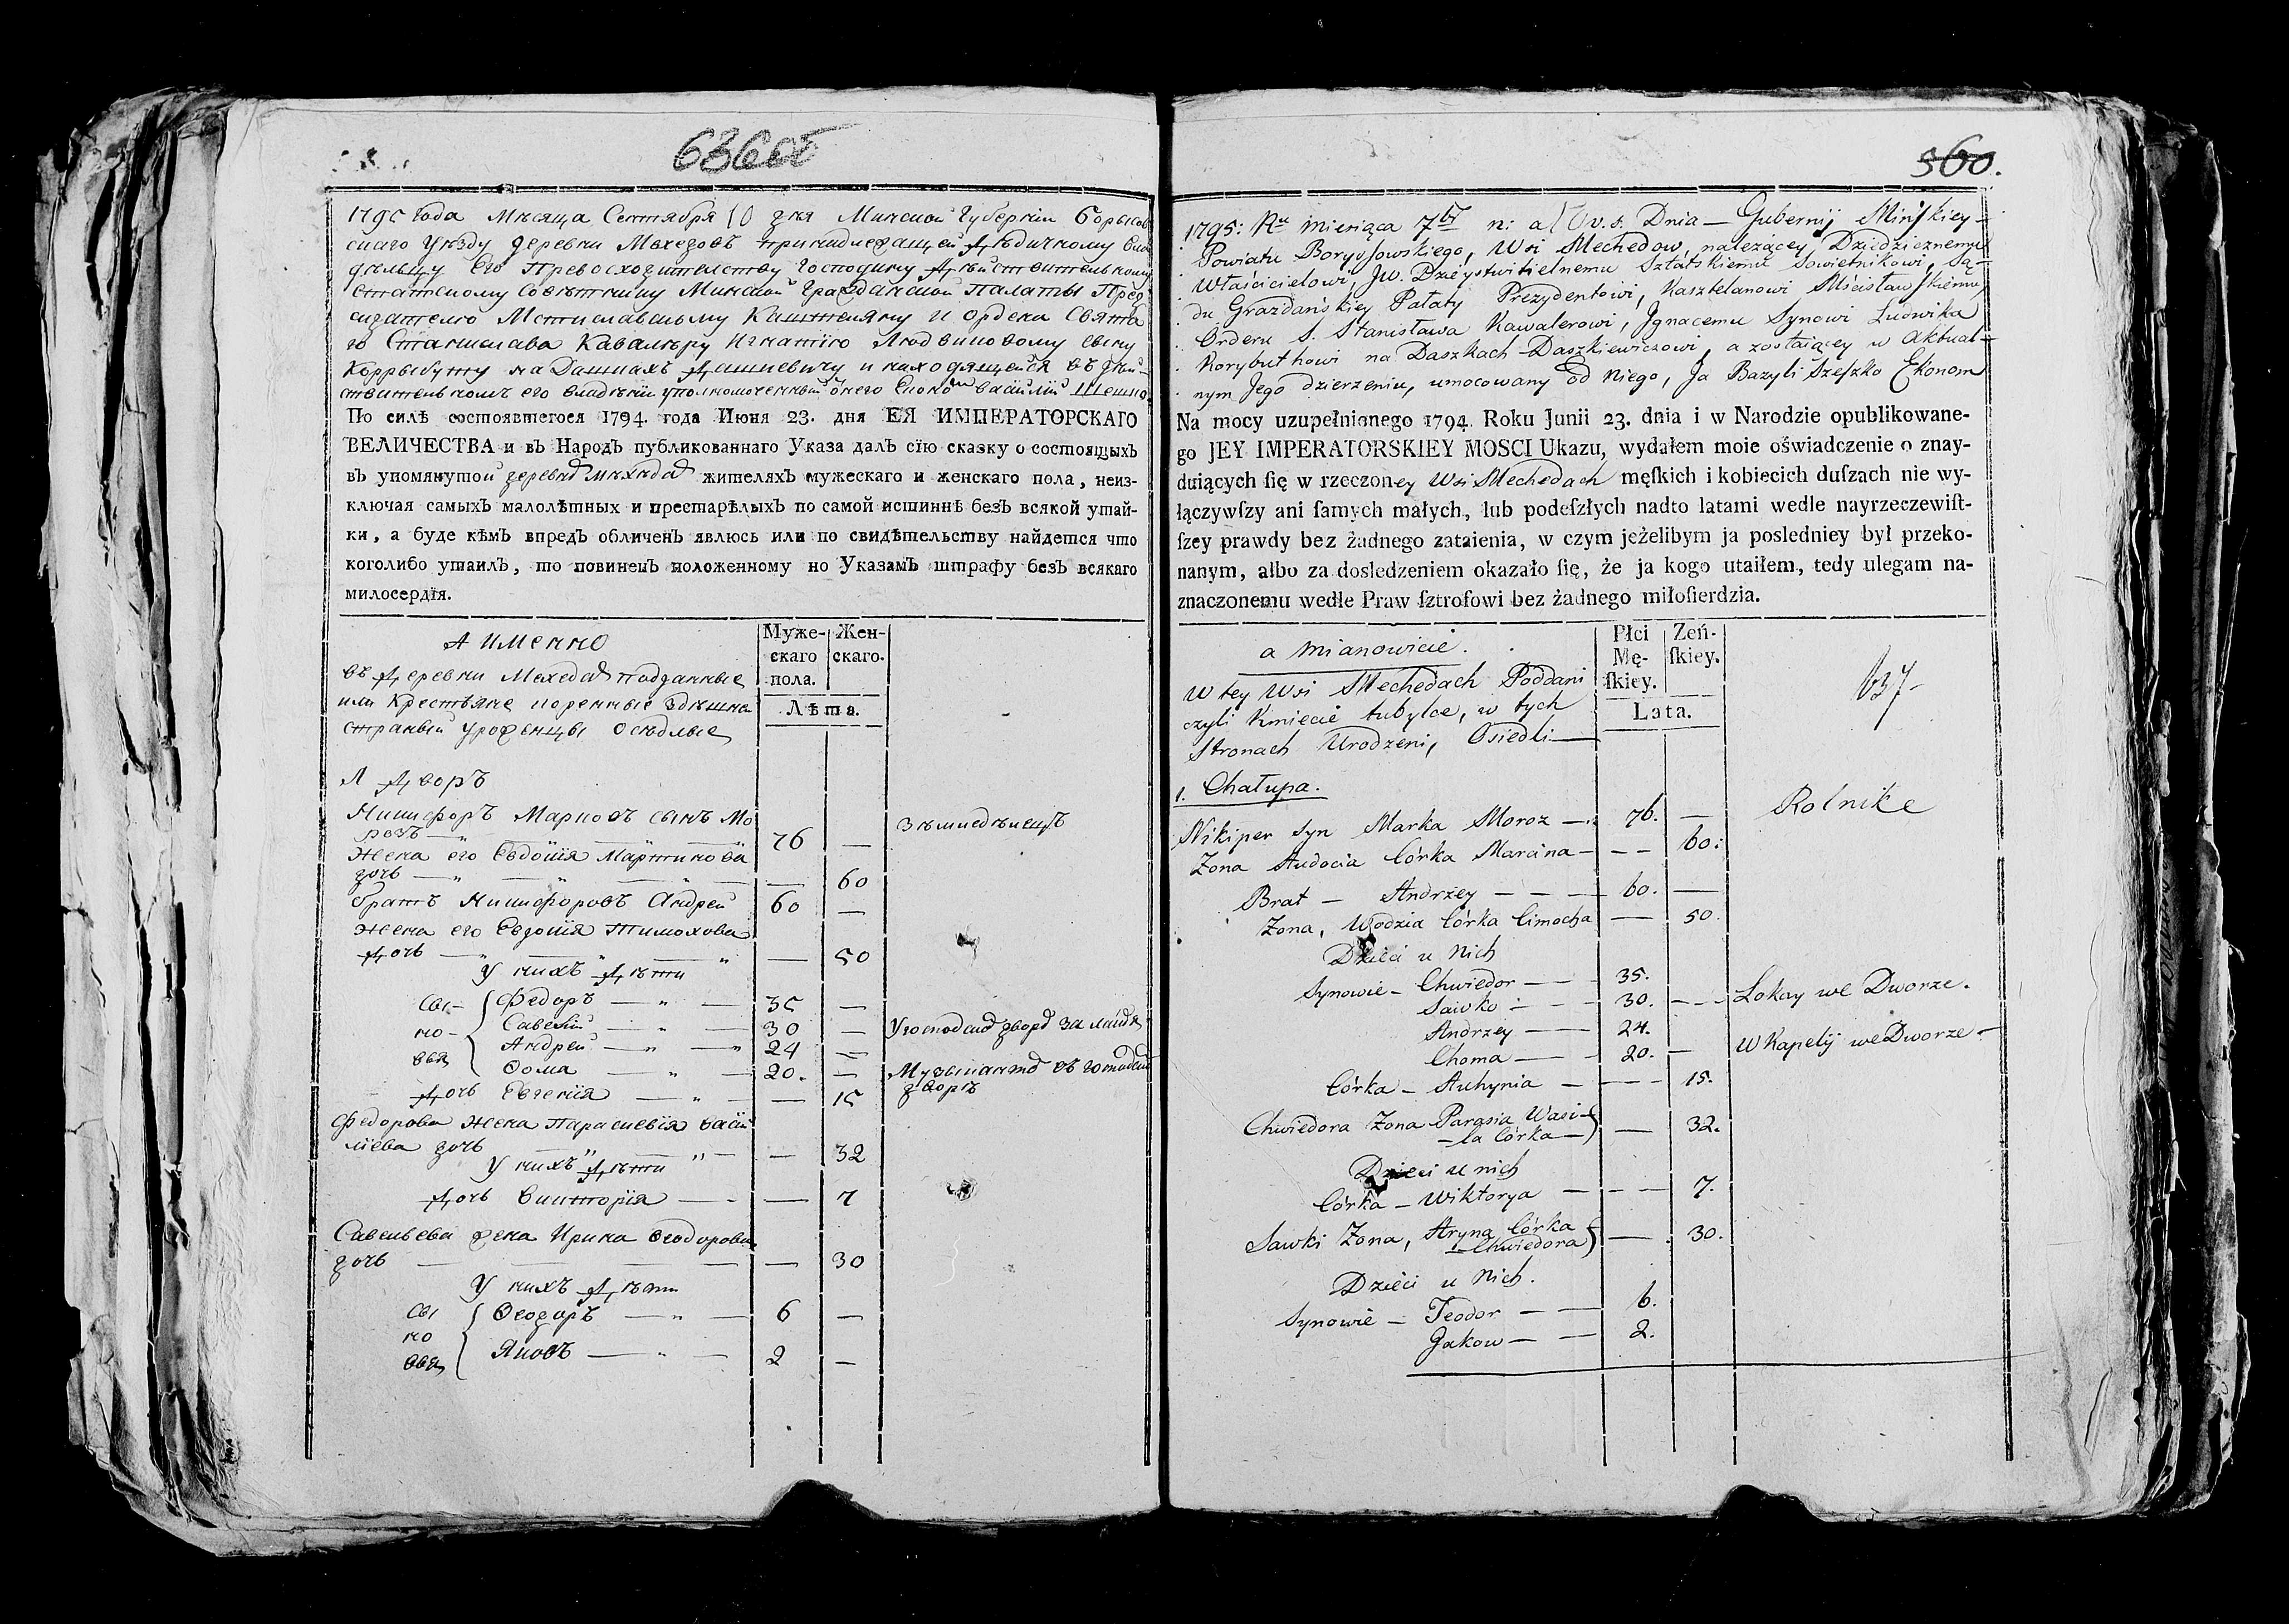 636об
1795 года Мѣсяца Сентября 10 дня Минской Губерніи Борысов
скаго Уѣзду деревни Мехедовъ принадлежащей Дѣдичному Вла
дѣльцу Его Превосходителству Господину Дѣйствителькому
Статскому Совѣтнику Минской Гражданской Палаты Пред
сидателю Мстиславскому Каштеляну и Ордена Свята
го Станислава Кавалѣру Игнатію Людвиковому сыну
Коррыбуту на Дашкахъ Дашкевичу и находящейся въ дѣй-
ствителькомъ его владѣніи уполномоченный онаго Економ Василій Шешко
По силѣ состоявшегося 1794. года Июня 23. дня ЕЯ ИМПЕРАТОРСКАГО
ВЕЛИЧЕСТВА и въ Народъ публикованнаго Указа далъ сїю сказку о состоящыхъ
въ упомянутой деревнѣ Мехедах жителяхъ мужескаго и женскаго пола, неиз-
ключая самыхъ малолѣтныхъ и престарѣлыхъ по самой истиннѣ безъ всякой утай-
ки, а буде кѣмъ впредъ обличенъ явлюсь или по свидѣтельству найдется что
коголибо утаилъ, то повиненъ положенному по Указамъ штрафу безъ всякаго
милосердїя.
А именно
Муже-
скаго
пола.
Жен-
скаго.
Лѣта.
въ Деревни Мехедах подданные
или Крестьяне коренные здѣшна
страный уроженцы Осѣдлые
1 Дворъ
Никифоръ Марковъ сынъ Мо
розъ — 76 — Земледѣлецъ
Жена его Евдокія Мартинова
дочь — 60
Братъ Никифоровъ Андрей 60 —
Жена его Евдокія Тимохова
Дочь — 50
У нихъ Дѣти
Сы-
но-
вья
Федоръ — 35 —
Савелій — 30 — У господина дворѣ за лакѣя
Андрей — 24 —
Ѳома — 20. — Музыкантъ въ господск
дворѣ
Дочь Евгенія — 15
Федорова Жена Параскевія Васи
ліева дочь — 32
У нихъ Дѣти
Дочь Викторія — 7
Савельева жена Ирина Ѳеодорова
дочь — 30
У нихъ Дѣти
Сы
но
вья
Ѳеодоръ — 6 —
Яковъ — 2 —
360.
1795: Ru miesiąca 7br n: a 10 v. s. Dnia — Gubernij Mińskiey —
Powiatu Borysowskiego, Wsi Mechedow, należącey Dziedzicznemu
Właścicielowi, JW. Dzieystwitielnemu Sztatskiemu Sowietnikowi, Są-
du Grazdańskiey Pałaty Prezydentowi, Kasztelanowi Mścisławskiemu
Orderu S. Stanisława Kawalerowi, Jgnacemu Synowi Ludwika
Korybuthowi na Daszkach Daszkiewiczowi, a zostaiącey w Aktual-
nym Jego dzierzeniu, umocowany od niego, Ja Bazyli Szeszko Ekonom
Na mocy uzupełnionego 1794. Roku Junii 23. dnia i w Narodzie opublikowane-
go JEY IMPERATORSKIEY MOSCI Ukazu, wydałem moie oświadczenie o znay-
duiących ſię w rzeczoney Wsi Mechedach męſkich i kobiecich duſzach nie wy-
łączywſzy ani ſamych małych, lub podeſzłych nadto latami wedle nayrzeczewiſt-
ſzey prawdy bez żadnego zataienia, w czym jeżelibym ja posledniey był przeko-
nanym, albo za dosledzeniem okazało ſię, że ja kogo utaiłem, tedy ulegam na-
znaczonemu wedle Praw ſztrofowi bez żadnego miłoſierdzia.
a mianowicie.
Płci
Mę-
ſkiey.
Zeń-
ſkiey.
Lata.
637
W tey Wsi Mechedach Poddani
czyli Kmiecie tubylce, w tych
Stronach Urodzeni, Osiedli —
1. Chałupa.
Nikiper Syn Marka Moroz — 76. — Rolnik
Zona Audocia Córka Marcina — 60.
Brat — Andrzey — 60. —
Zona, Wodzia Córka Cimocha — 50.
Dzieci u Nich
Synowie — Chwiedor — 35.
Sawko — 30. — Lokay we Dworze.
Andrzey — 24.
Choma — 20. — W Kapelij we Dworze —
Córka — Auhynia — 15.
Chwiedora Zona Parasia Wasi-
la Córka — 32.
Dzieci u nich
Córka — Wiktorya — 7.
Sawki Zona, Aryna Córka
Chwiedora — 30.
Dzieci u Nich.
Synowie — Teodor — 6.
Jakow — 2.